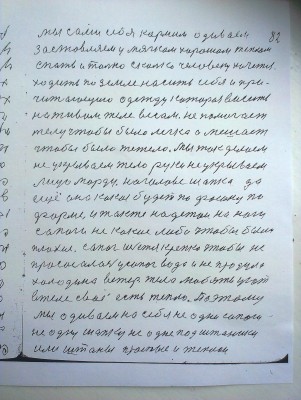 82
мы сами себя кормим одиваем
заставляем у мягком хорошом теплом
спать а только сколько человеку хочется
ходить по земле насить себя и при
читающую одежду которая висить
на живим теле весам, не помогает
телу чтобы было легко а мешает
чтобы было тепело. Мы так делаем
не укрываем тело руки не укрываем
лицо морду. на голове шапка да
ещё она какая будет по фасону по
форме и также надетои на ногу
сапоги не какие либо чтобы были
плохие. сапог шьют крепко чтобы не
прососалась у сапог вода и не продуло
холодина ветер тела мабыть у этот
в теле своё есть тепло. Поэтому
мы одиваем на себя не одна сапоги
не одну шапку не одне подштанники
или штаны простые и теплои